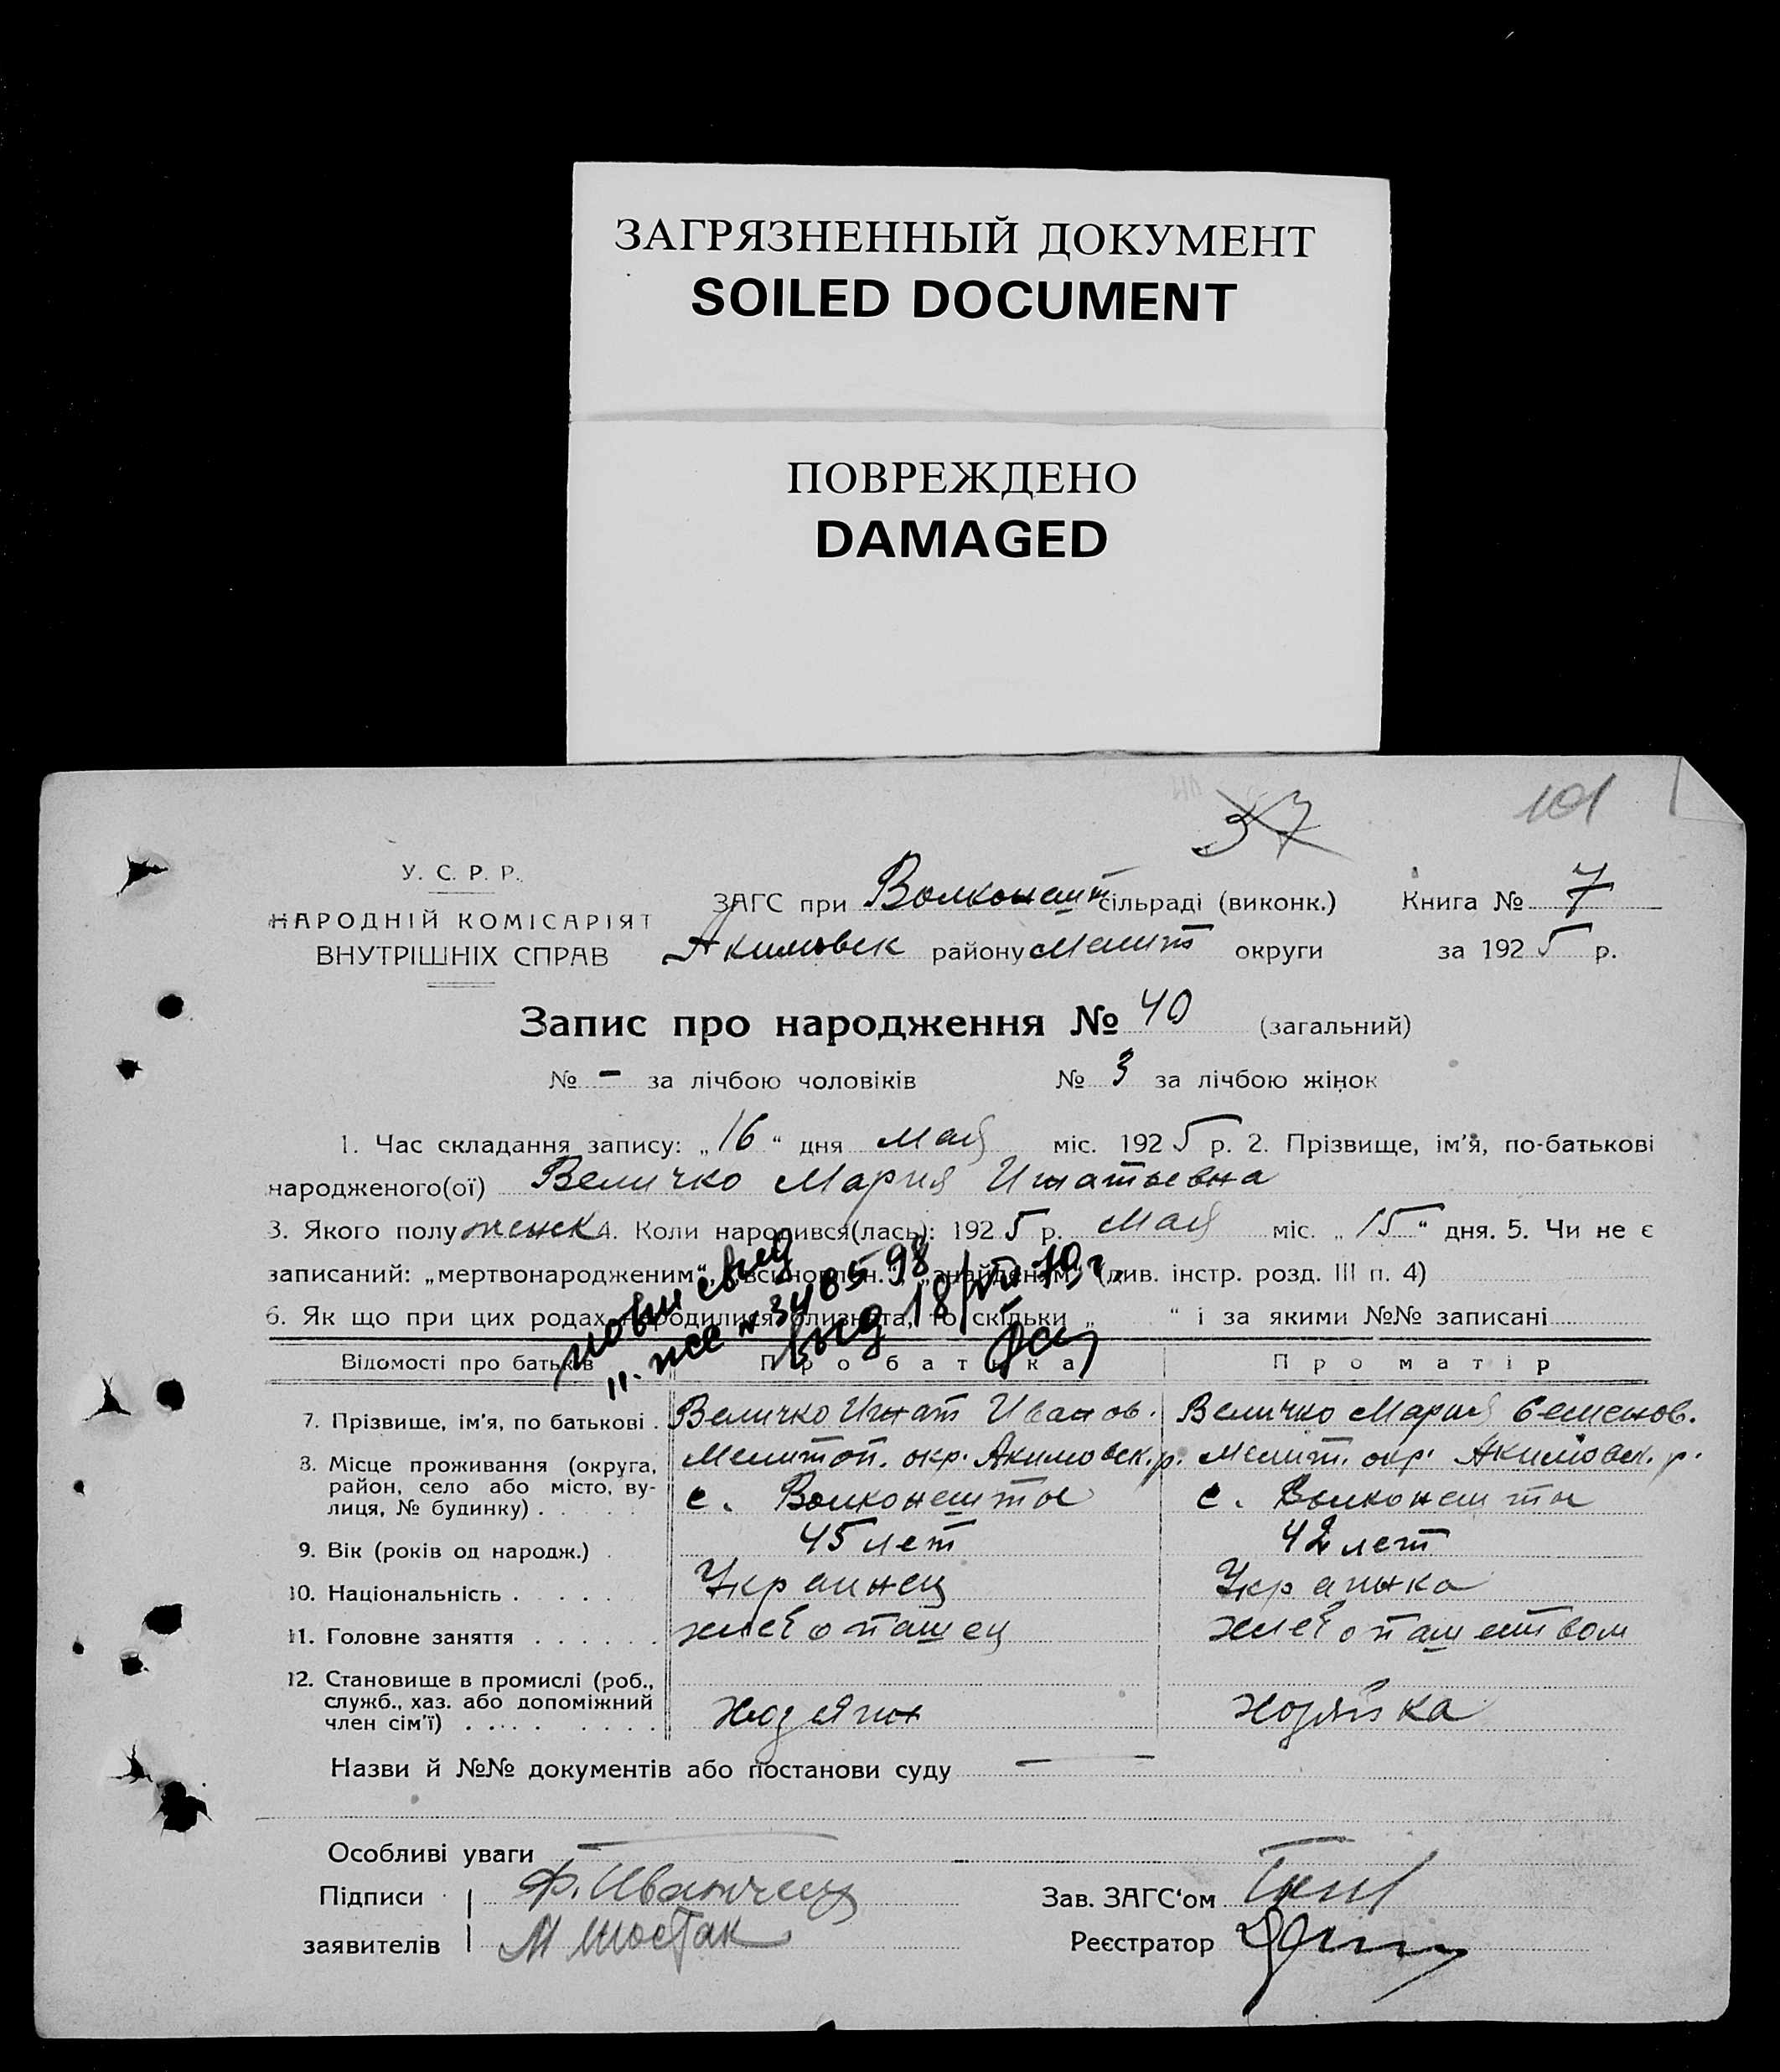 ЗАГРЯЗНЕННЫЙ ДОКУМЕНТ
SOILED DOCUMENT
ПОВРЕЖДЕНО
DAMAGED
37
101
У. С. Р. Р.
НАРОДНІЙ КОМІСАРІЯТ
ВНУТРІШНІХ СПРАВ
ЗАГС при Волконешт сільраді (виконк.) Книга № 7
Акимовск району Мелит округи за 1925 р.
Запис про народження № 40 (загальний)
№ – за лічбою чоловіків № 3 за лічбою жінок
1. Час складання запису: „16“ дня мая міс. 1925 р. 2. Прізвище, ім'я, по-батькові
народженого(ої) Величко Мария Игнатьевна
3. Якого полу женск 4. Коли народився(лась): 1925 р. Мая міс. „15“ дня. 5. Чи не є
записаний: „мертвонародженим“, „всиновлен.“, „знайденим“ (див. інстр. розд. III п. 4)
6. Як що при цих родах народилися близнята, то скільки „ “ і за якими №№ записані
Відомості про батьків Про батька Про матір
7. Прізвище, ім'я, по батькові . Величко Игнат Иванов. Величко Мария Семенов.
8. Місце проживання (округа, район, село або місто, вулиця, № будинку) . Мелитоп. окр. Акимовск. р. Мелит. окр. Акимовск. р.
с. Волконешты с. Волконешты
9. Вік (років од народж.) . 45 лет 42 лет
10. Національність . Украинец Украинка
11. Головне заняття . хлебопашец хлебопашеством
12. Становище в промислі (роб., служб., хаз. або допоміжний член сім'ї) . хозяин хозяйка
Назви й №№ документів або постанови суду —
Особливі уваги
Підписи Ф. Иванчец Зав. ЗАГС'ом
заявителів М Шостак Реєстратор